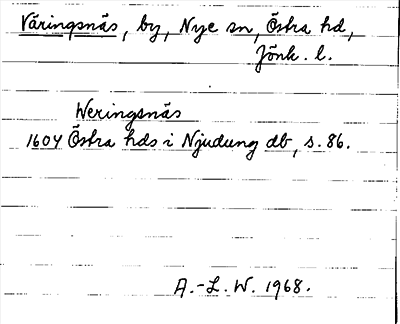 Väringsnäs, by, Nye sn, Östra hd,
Jönk. l.
Weringsnäs
1604 Östra hds i Njudung db, s. 86.
A.-L. W. 1968.